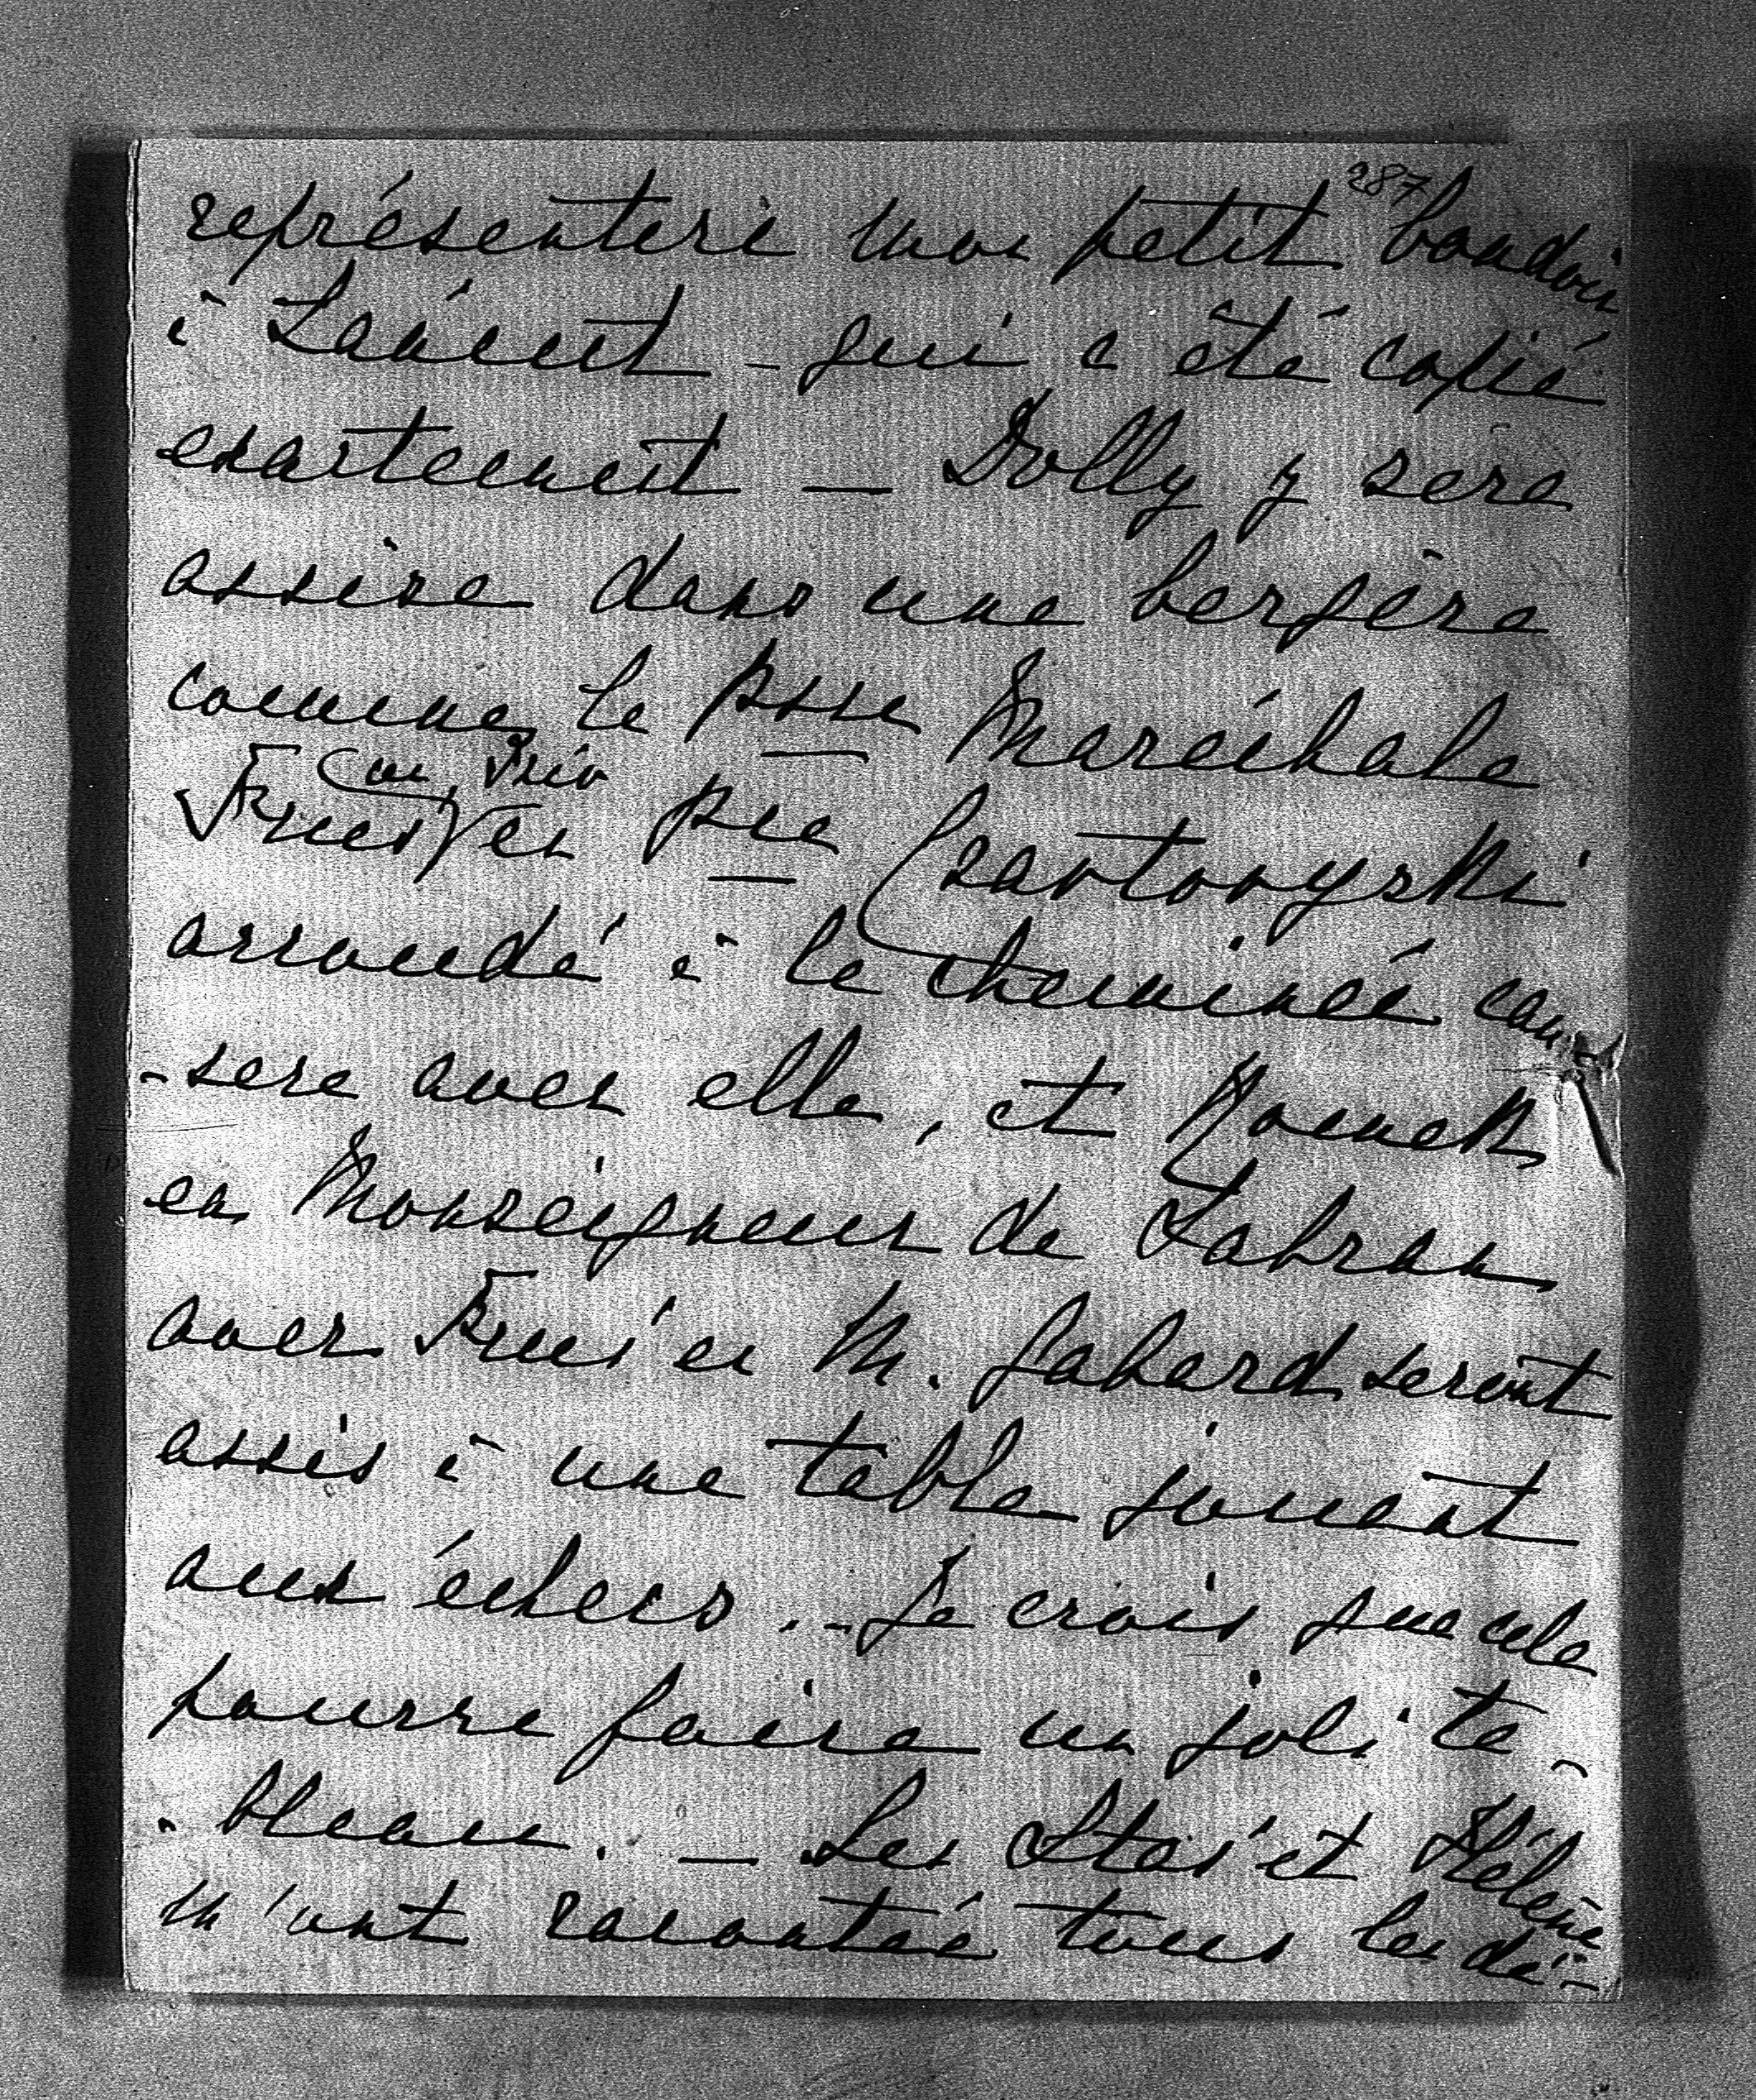 287
représentera mon petit boudoir
à Lańcut – qui a été copié
exactement – Dolly y sera
assise dans une bergère
comme la Psse Maréchale
ou Trio
en Pce Czartoryski
accoudé à la cheminée cau-
-sera avec elle, et Romek
en Monseigneur de Latran
avec en M. Gabard seront
assis à une table jouant
aux échecs. – Je crois que cela
pourra faire un joli ta-
-bleau. – Les Staś et Hélène
m'ont raconté tous les dé-